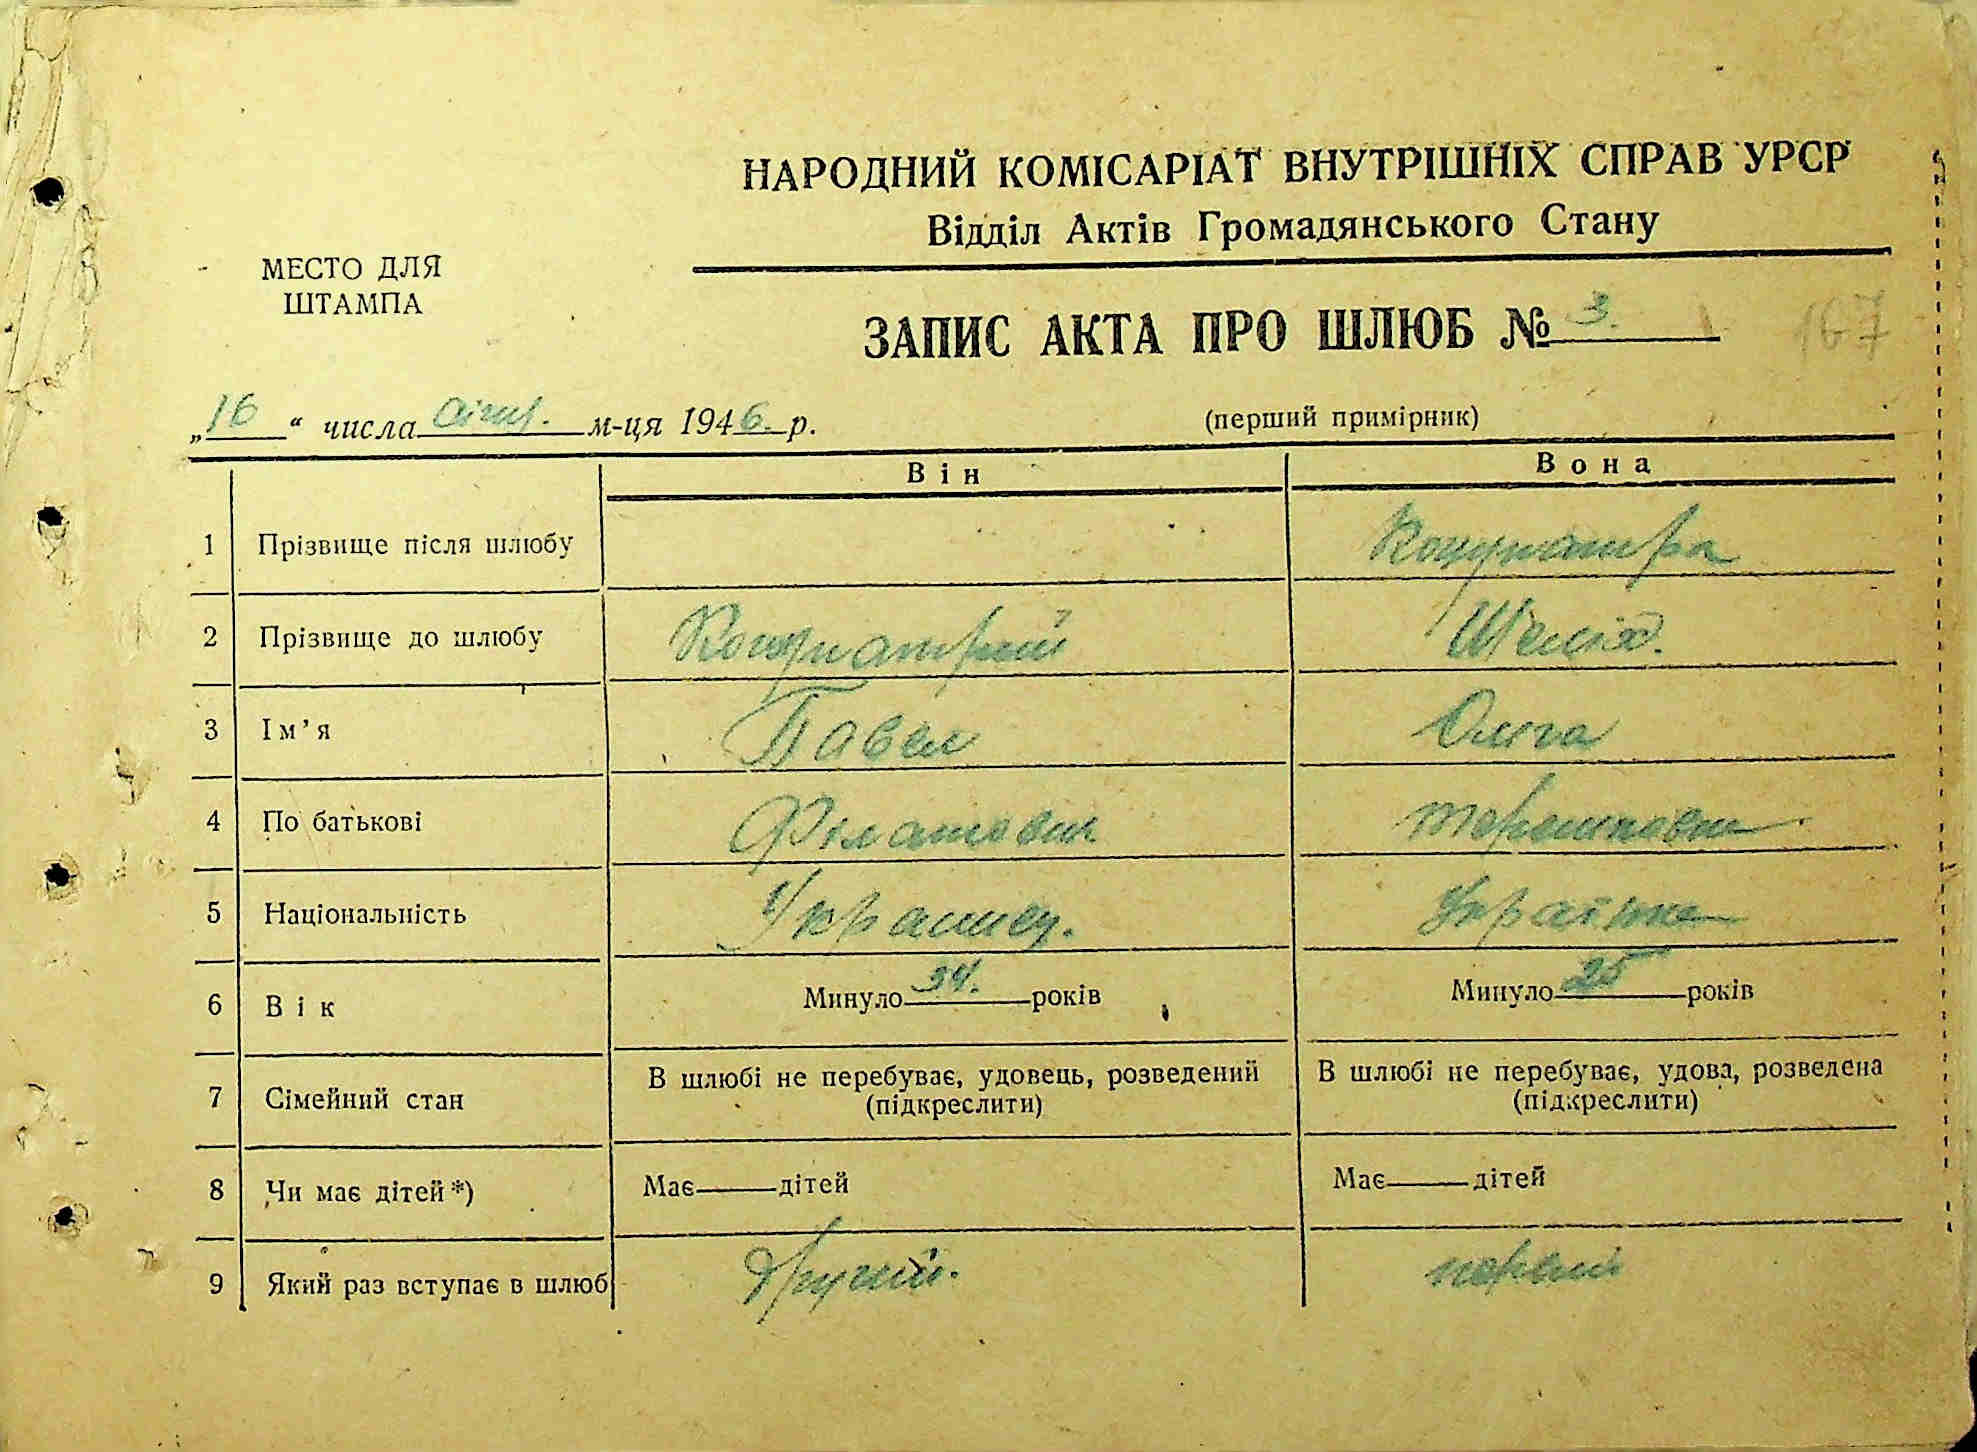 НАРОДНИЙ КОМІСАРІАТ ВНУТРІШНІХ СПРАВ УРСР
Відділ Актів Громадянського Стану
МЕСТО ДЛЯ
ШТАМПА
ЗАПИС АКТА ПРО ШЛЮБ № 3. 167
„16“ числа січн. м-ця 1946. р. (перший примірник)
Він Вона
1 Прізвище після шлюбу
2 Прізвище до шлюбу
3 Ім’я Павел Ольга
4 По батькові Філатович
5 Національність Украинец. Українка
6 Вік Минуло 34. років Минуло 25 років
7 Сімейний стан В шлюбі не перебуває, удовець, розведений (підкреслити) В шлюбі не перебуває, удова, розведена (підкреслити)
8 Чи має дітей*) Має дітей Має дітей
9 Який раз вступає в шлюб другий. первий